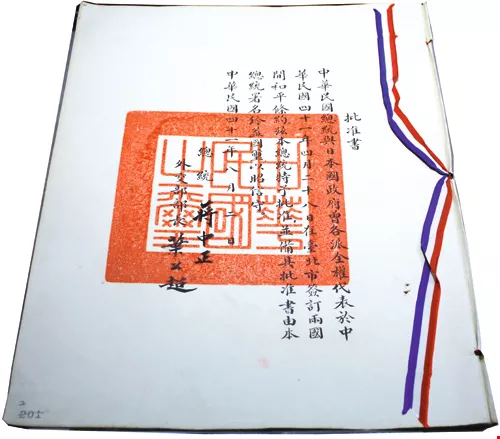 批准書
中華民國總統與日本國政府曾各派全權代表於中
華民國四十一年四月二十八日在臺北市簽訂兩國
間和平條約本總統特予批准並備具批准書由本
總統署名鈐蓋國璽以昭信守
中華民國四十一年八月二日
總統 蔣中正
外交部部長 葉公超
中華
民國
之璽
2
205